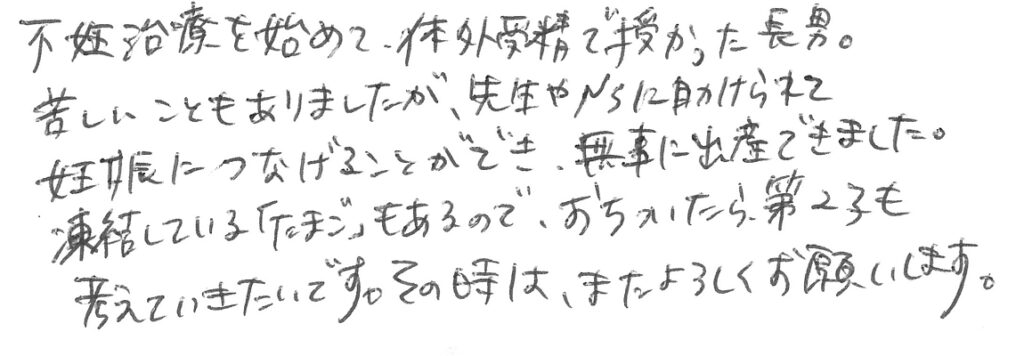 不妊治療を始めて、体外受精で授かった長男。
苦しいこともありましたが、先生やNsに助けられて
妊娠につなげることができ、無事に出産できました。
凍結している「たまご」もあるので、おちついたら、第2子も
考えていきたいです。その時は、またよろしくお願いします。